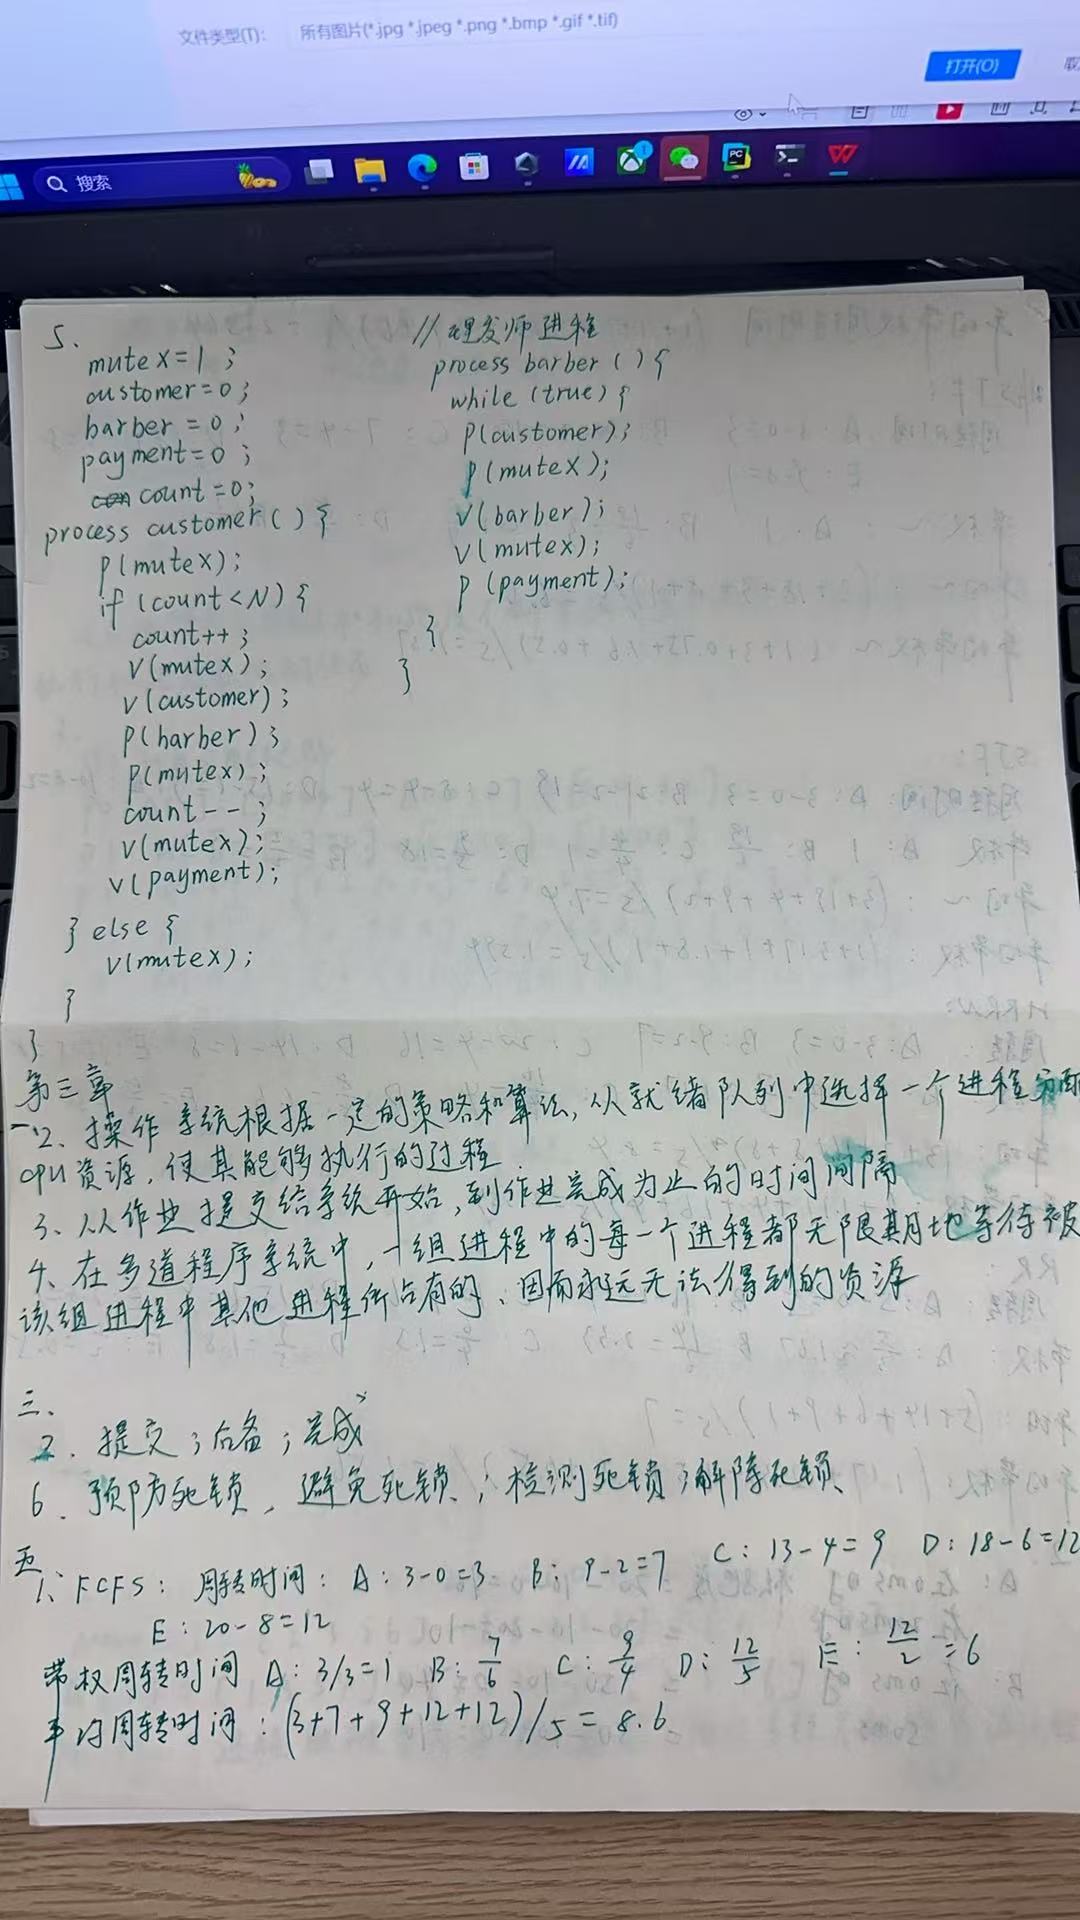 文件类型(T):
所有图片(*.jpg *.jpeg *.png *.bmp *.gif *.tif)
打开(O)
取
搜索
5.
mutex=1;
customer=0;
barber=0;
payment=0;
count=0;
process customer(){
p(mutex);
if(count<N){
count++;
v(mutex);
v(customer);
p(barber);
p(mutex);
count--;
v(mutex);
v(payment);
}else{
v(mutex);
}
}
//理发师进程
process barber(){
while(true){
p(customer);
p(mutex);
v(barber);
v(mutex);
p(payment);
}
}
第三章
一2、操作系统根据一定的策略和算法,从就绪队列中选择一个进程分配
CPU资源,使其能够执行的过程
3、从作业提交给系统开始,到作业完成为止的时间间隔
4、在多道程序系统中,一组进程中的每一个进程都无限期地等待被
该组进程中其他进程所占有的、因而永远无法得到的资源
三、
2.提交;后备;完成
6.预防死锁、避免死锁;检测死锁;解除死锁
五
1、FCFS:周转时间:A:3-0=3 B:9-2=7 C:13-4=9 D:18-6=12
E:20-8=12
带权周转时间 A:3/3=1 B:7/6 C:9/4 D:12/5 E:12/2=6
平均周转时间:(3+7+9+12+12)/5=8.6